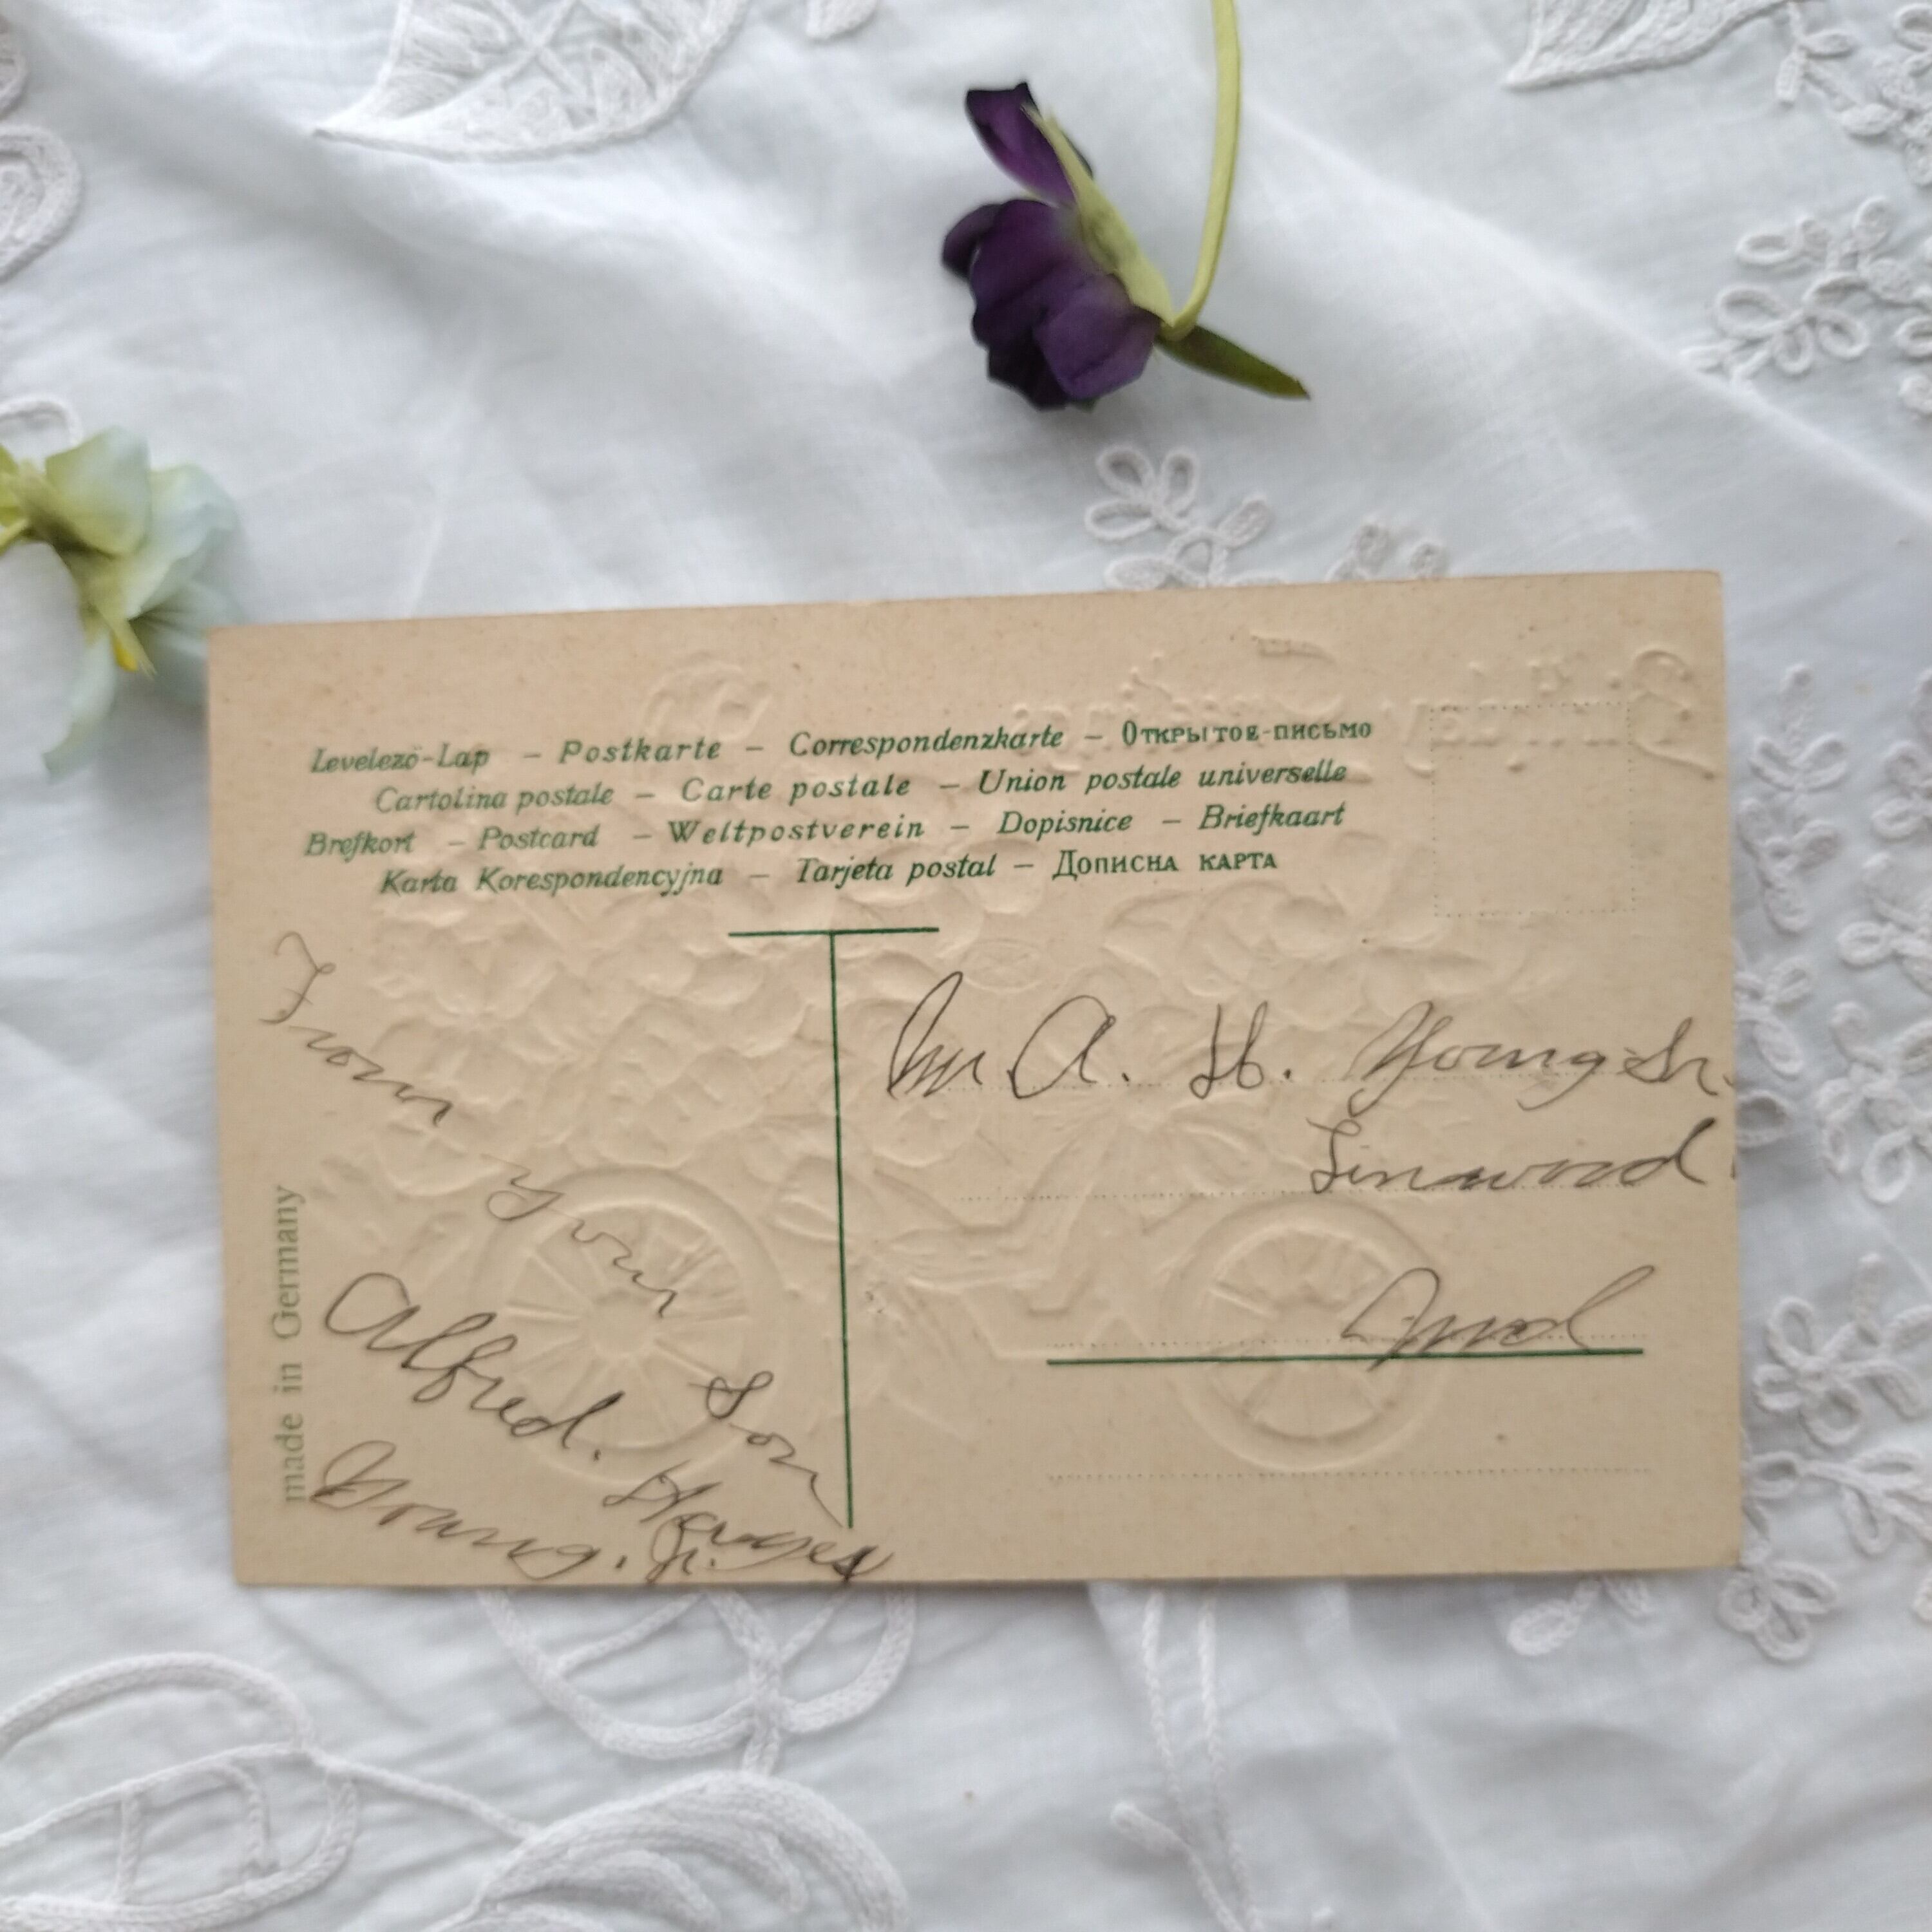 Levelező-Lap – Postkarte – Correspondenzkarte – Открытое-письмо
Cartolina postale – Carte postale – Union postale universelle
Brefkort – Postcard – Weltpostverein – Dopisnice – Briefkaart
Karta Korespondencyjna – Tarjeta postal – Дописна карта
made in Germany
From your Son
Alfred. Hayes
Young. Jr.
Mr. A. H. Young Sr.
Linwood
Md
Birthday